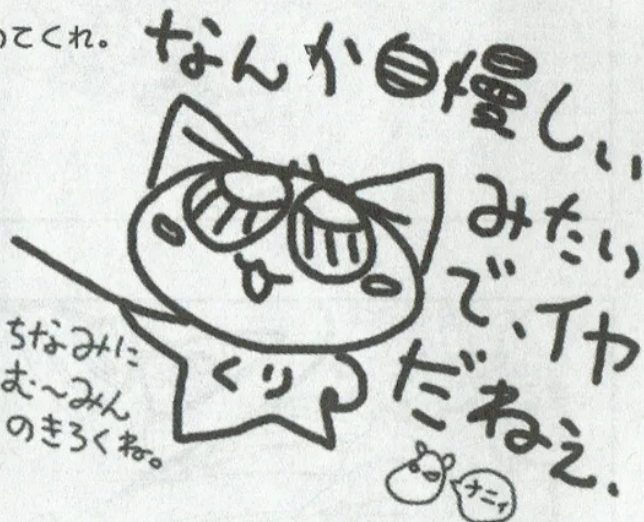 てくれ。
なんか自慢しい
みたい
で、イヤ
だねぇ、
ちなみに
む〜みん
のきろくね。
くり
ナニィ